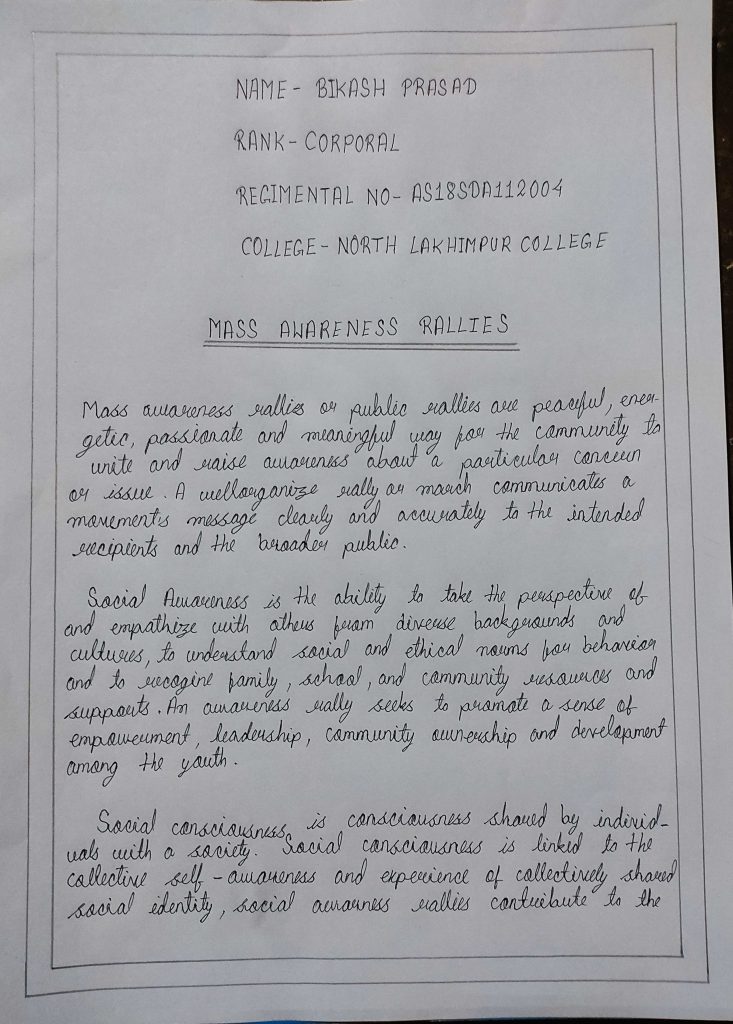 NAME- BIKASH PRASAD
RANK- CORPORAL
REGIMENTAL NO- AS18SDA112004
COLLEGE- NORTH LAKHIMPUR COLLEGE
MASS AWARENESS RALLIES
Mass awareness rallies or public rallies are peaceful, ener-
getic, passionate and meaningful way for the community to
unite and raise awareness about a particular concern
or issue. A wellorganize rally or march communicates a
movement's message clearly and accurately to the intended
recipients and the broader public.
Social Awareness is the ability to take the perspective of
and empathize with others from diverse backgrounds and
cultures, to understand social and ethical norms for behavior
and to recogine family, school, and community resources and
supports. An awareness rally seeks to promote a sense of
empowerment, leadership, community ownership and development
among the youth.
Social consciousness is consciousness shared by individ-
uals with a society. Social consciousness is linked to the
collective self-awareness and experience of collectively shared
social identity, social awarness rallies contribute to the